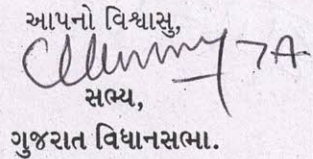 આપનો વિશ્વાસુ,
7A
સભ્ય,
ગુજરાત વિધાનસભા.